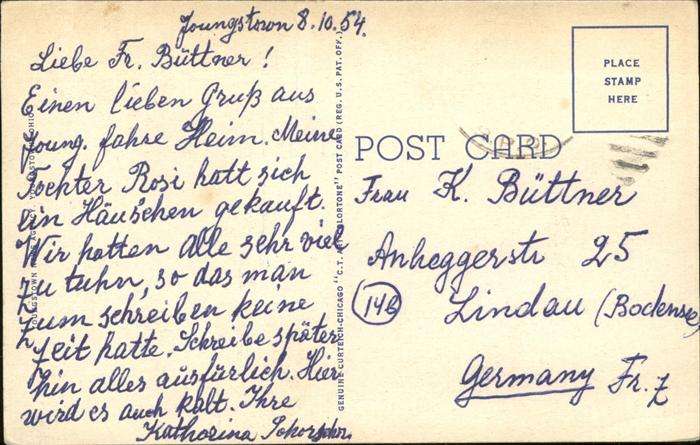 Youngstown 8.10.54.
Liebe Fr. Büttner!
Einen lieben Gruß aus
Young. fahre Heim. Meine
Tochter Rosi hatt sich
ein Häuschen gekauft.
Wir hatten alle sehr viel
zu tuhn, so das man
zum schreiben keine
Zeit hatte. Schreibe später
hin alles ausfürlich. Hier
wird es auch kalt. Ihre
Katharina
GENUINE CURTEICH-CHICAGO "C.T. ART-COLORTONE" POST CARD (REG. U.S. PAT. OFF.)
PLACE
STAMP
HERE
POST CARD
Frau K. Büttner
Anheggerstr 25
(14b) Lindau (Bodensee
Germany Fr. Z